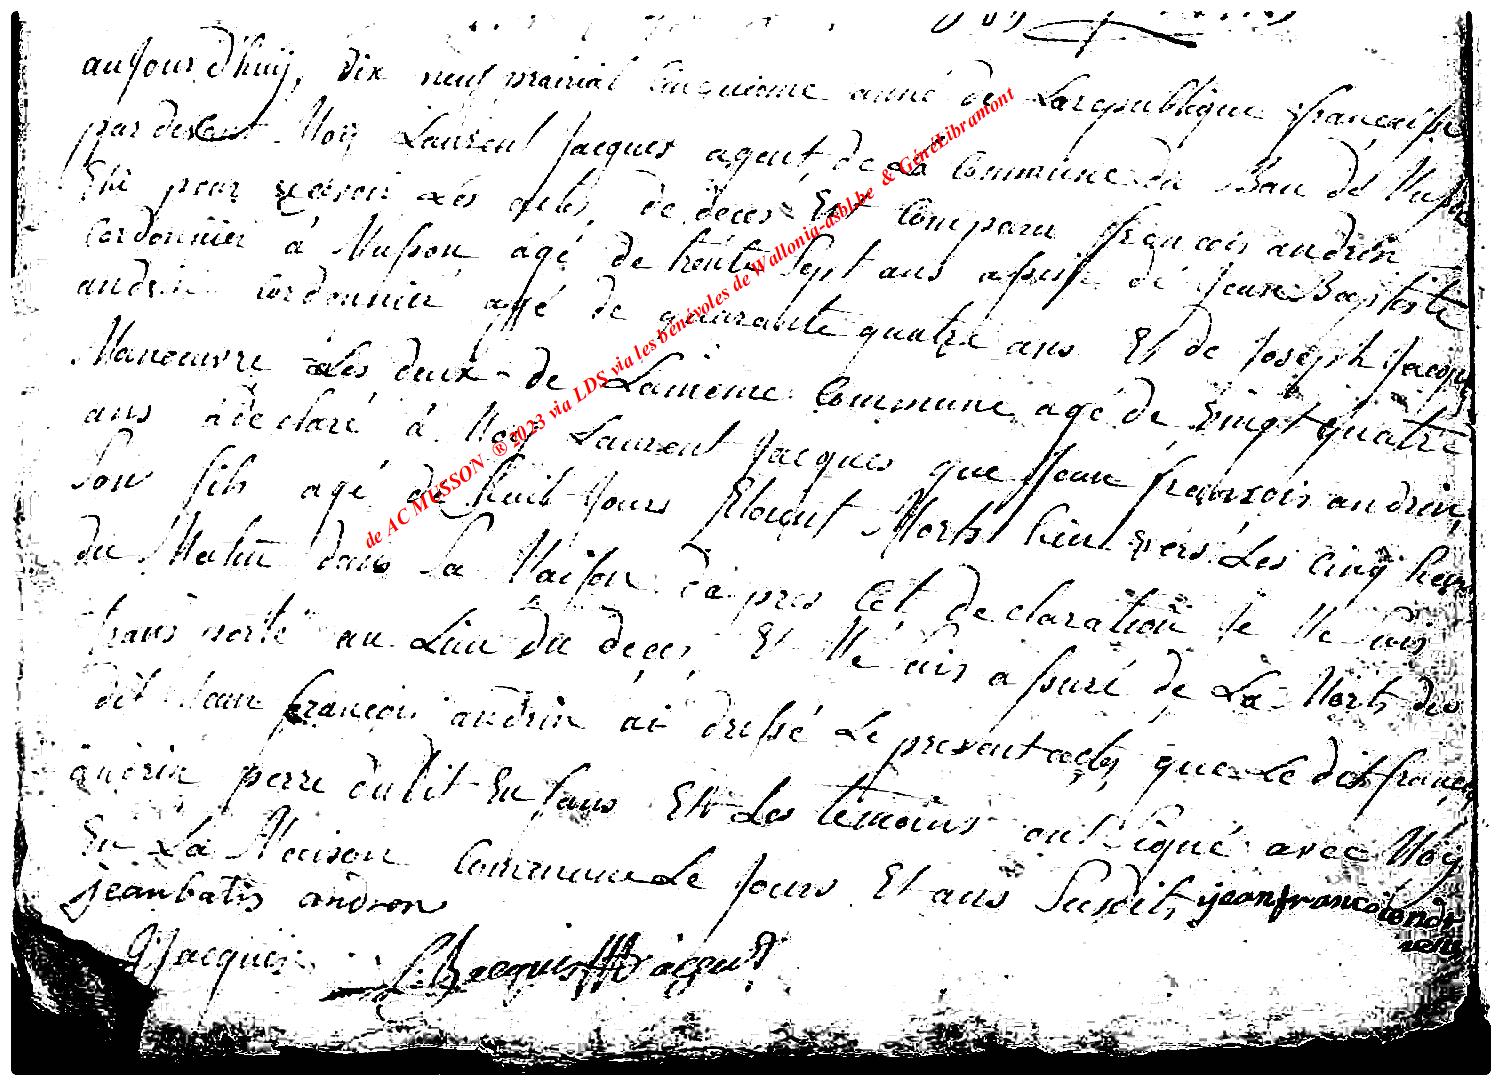 aujourd'huij, dix neuf prairial cinquieme anné de Larepublique françaisse
pardevent Moij Laurent Jacques agent de La Commune du Ban de Musson
Elu pour recevoir Les actes de deces Est Comparu françois andrin
Cordonnier á Musson agé de trente Sept ans assisté dé Jean Baptiste
andrin cordonnier agé de quarante quatre ans Et de Joseph Jacques
Manoeuvre Les deux de Lamême Commune agé de vingt quatre
ans à declaré á Moij Laurent Jacques que Jean françois andrin
Son fils agé de huit Jours Etoint Morts hier vers Les cinq heurs
du Matin dans Sa Maison d'a pres Cet declaration Je Me Suis
transporté au Lieu du deces, Et Mé Suis assuré de La Morts du
dit Jean françois andrin ai dressé Le present acte, que Le dit françois
andrin perre dudit Enfans Et Les temoins ont Signé avec Moij
En La Maison Commune Le Jours Et ans Susdit, jeanfrancoi andr
jeanbatis andron
J Jacques L Jacques
de AC MUSSON ® 2023 via LDS via les bénévoles de Wallonia-asbl.be & GénéLibramont